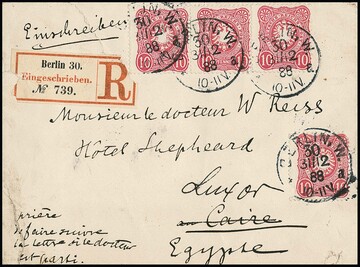 Einschreiben
Berlin 30.
Eingeschrieben.
№ 739.
R
BERLIN, W.
30
88
10-11V.
a
10
10
10
10
Monsieur le docteur W Reiss
Hôtel Shepheard
Luxor
Caire
Egypte
prière
de faire suivre
la lettre si le docteur
est parti.